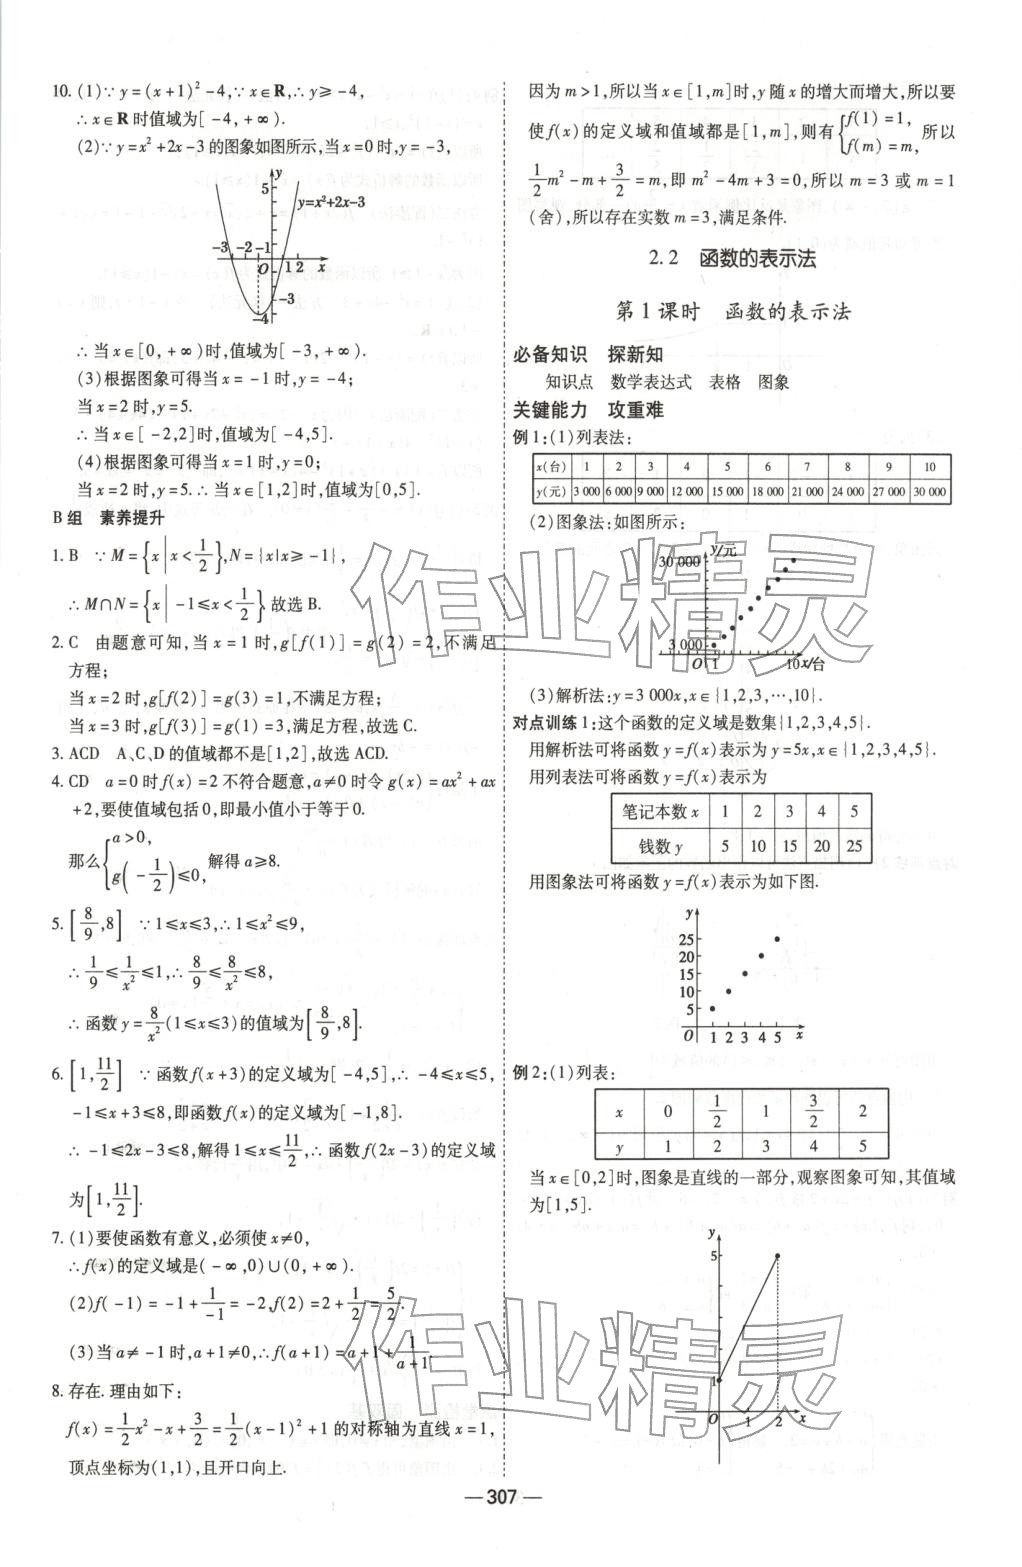 10. (1)∵y=(x+1)²-4,∵x∈R,∴y≥-4,
∴x∈R时值域为[-4,+∞).
(2)∵y=x²+2x-3的图象如图所示,当x=0时,y=-3,
y
5
y=x²+2x-3
-3 -2 -1
O 1 2 x
-3
-4
∴当x∈[0,+∞)时,值域为[-3,+∞).
(3)根据图象可得当x=-1时,y=-4;
当x=2时,y=5.
∴当x∈[-2,2]时,值域为[-4,5].
(4)根据图象可得当x=1时,y=0;
当x=2时,y=5.∴当x∈[1,2]时,值域为[0,5].
B组 素养提升
1. B ∵M={x|x<1/2},N={x|x≥-1},
∴M∩N={x|-1≤x<1/2}.故选B.
2. C 由题意可知,当x=1时,g[f(1)]=g(2)=2,不满足
方程;
当x=2时,g[f(2)]=g(3)=1,不满足方程;
当x=3时,g[f(3)]=g(1)=3,满足方程,故选C.
3. ACD A、C、D的值域都不是[1,2],故选ACD.
4. CD a=0时f(x)=2不符合题意,a≠0时令g(x)=ax²+ax
+2,要使值域包括0,即最小值小于等于0.
那么{a>0, g(-1/2)≤0, 解得a≥8.
5. [8/9,8] ∵1≤x≤3,∴1≤x²≤9,
∴1/9≤1/x²≤1,∴8/9≤8/x²≤8,
∴函数y=8/x²(1≤x≤3)的值域为[8/9,8].
6. [1,11/2] ∵函数f(x+3)的定义域为[-4,5],∴-4≤x≤5,
-1≤x+3≤8,即函数f(x)的定义域为[-1,8].
∴-1≤2x-3≤8,解得1≤x≤11/2,∴函数f(2x-3)的定义域
为[1,11/2].
7. (1)要使函数有意义,必须使x≠0,
∴f(x)的定义域是(-∞,0)∪(0,+∞).
(2)f(-1)=-1+1/-1=-2,f(2)=2+1/2=5/2.
(3)当a≠-1时,a+1≠0,∴f(a+1)=a+1+1/a+1.
8. 存在.理由如下:
f(x)=1/2x²-x+3/2=1/2(x-1)²+1的对称轴为直线x=1,
顶点坐标为(1,1),且开口向上.
因为m>1,所以当x∈[1,m]时,y随x的增大而增大,所以要
使f(x)的定义域和值域都是[1,m],则有{f(1)=1, f(m)=m, 所以
1/2m²-m+3/2=m,即m²-4m+3=0,所以m=3或m=1
(舍),所以存在实数m=3,满足条件.
2.2 函数的表示法
第1课时 函数的表示法
必备知识 探新知
知识点 数学表达式 表格 图象
关键能力 攻重难
例1:(1)列表法:
x(台) 1 2 3 4 5 6 7 8 9 10
y(元) 3 000 6 000 9 000 12 000 15 000 18 000 21 000 24 000 27 000 30 000
(2)图象法:如图所示:
y/元
30 000
3 000
O 1 10 x/台
(3)解析法:y=3 000x,x∈{1,2,3,…,10}.
对点训练1:这个函数的定义域是数集{1,2,3,4,5}.
用解析法可将函数y=f(x)表示为y=5x,x∈{1,2,3,4,5}.
用列表法可将函数y=f(x)表示为
笔记本数x 1 2 3 4 5
钱数y 5 10 15 20 25
用图象法可将函数y=f(x)表示为如下图.
y
25
20
15
10
5
O 1 2 3 4 5 x
例2:(1)列表:
x 0 1/2 1 3/2 2
y 1 2 3 4 5
当x∈[0,2]时,图象是直线的一部分,观察图象可知,其值域
为[1,5].
y
5
1
O 1 2 x
作业精灵
作业精灵
— 307 —